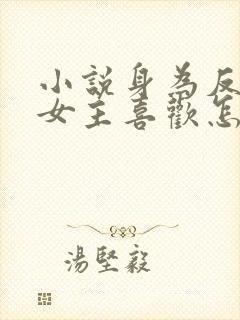 小説身為反
女主喜歡怎
湯堅毅